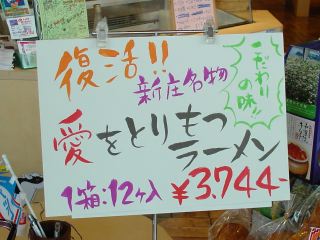 復活!!
新庄名物
こだわり
の味!!
愛をとりもつ
ラーメン
1箱:12ヶ入 ¥3.744-